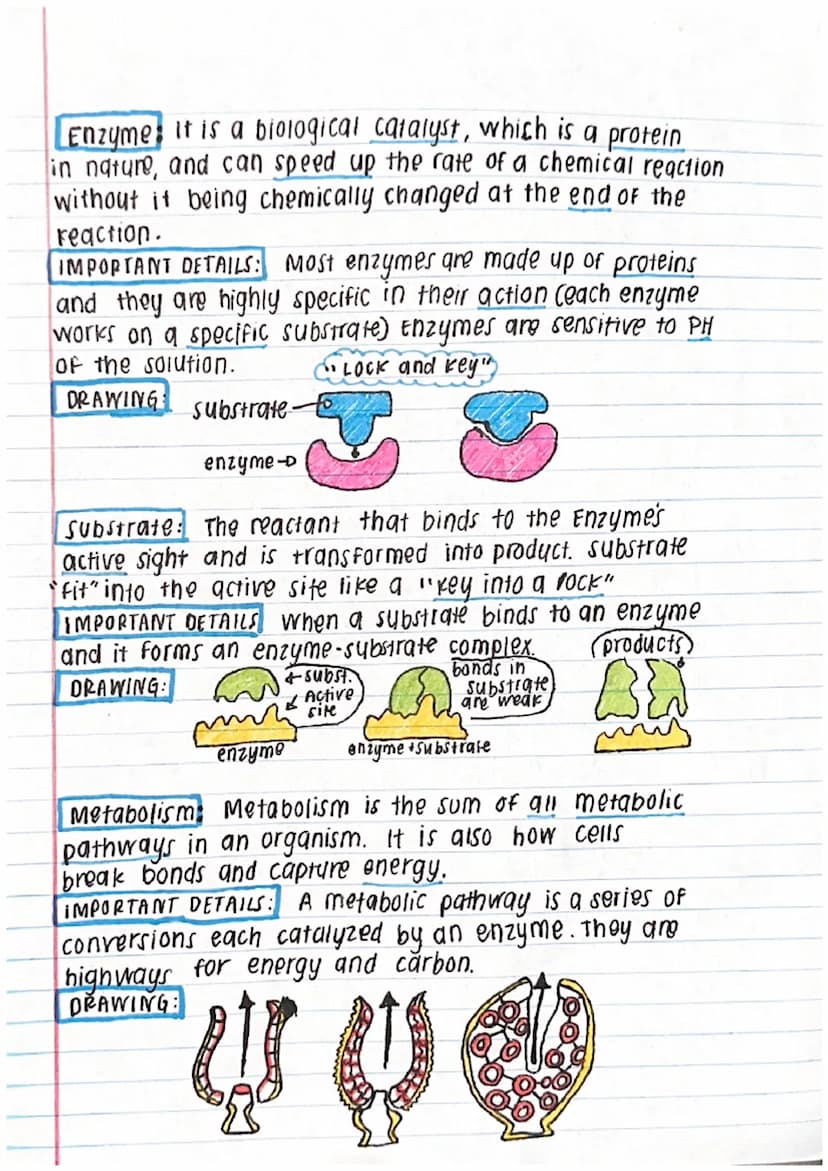 Enzyme: It is a biological catalyst, which is a protein
in nature, and can speed up the rate of a chemical reaction
without it being chemically changed at the end of the
reaction.
IMPORTANT DETAILS: Most enzymes are made up of proteins
and they are highly specific in their action (each enzyme
works on a specific substrate) Enzymes are sensitive to PH
of the solution.
"Lock and key"
DRAWING:
substrate
enzyme
Substrate: The reactant that binds to the Enzyme's
active sight and is transformed into product. Substrate
"fit" into the active site like a "key into a lock"
IMPORTANT DETAILS When a substrate binds to an enzyme
and it forms an enzyme-substrate complex.
products
DRAWING:
subst.
active
site
bonds in
substrate
are weak
enzyme
enzyme+substrate
Metabolism: Metabolism is the sum of all metabolic
pathways in an organism. It is also how cells
break bonds and capture energy.
IMPORTANT DETAILS: A metabolic pathway is a series of
conversions each catalyzed by an enzyme. They are
highways for energy and carbon.
DRAWING: